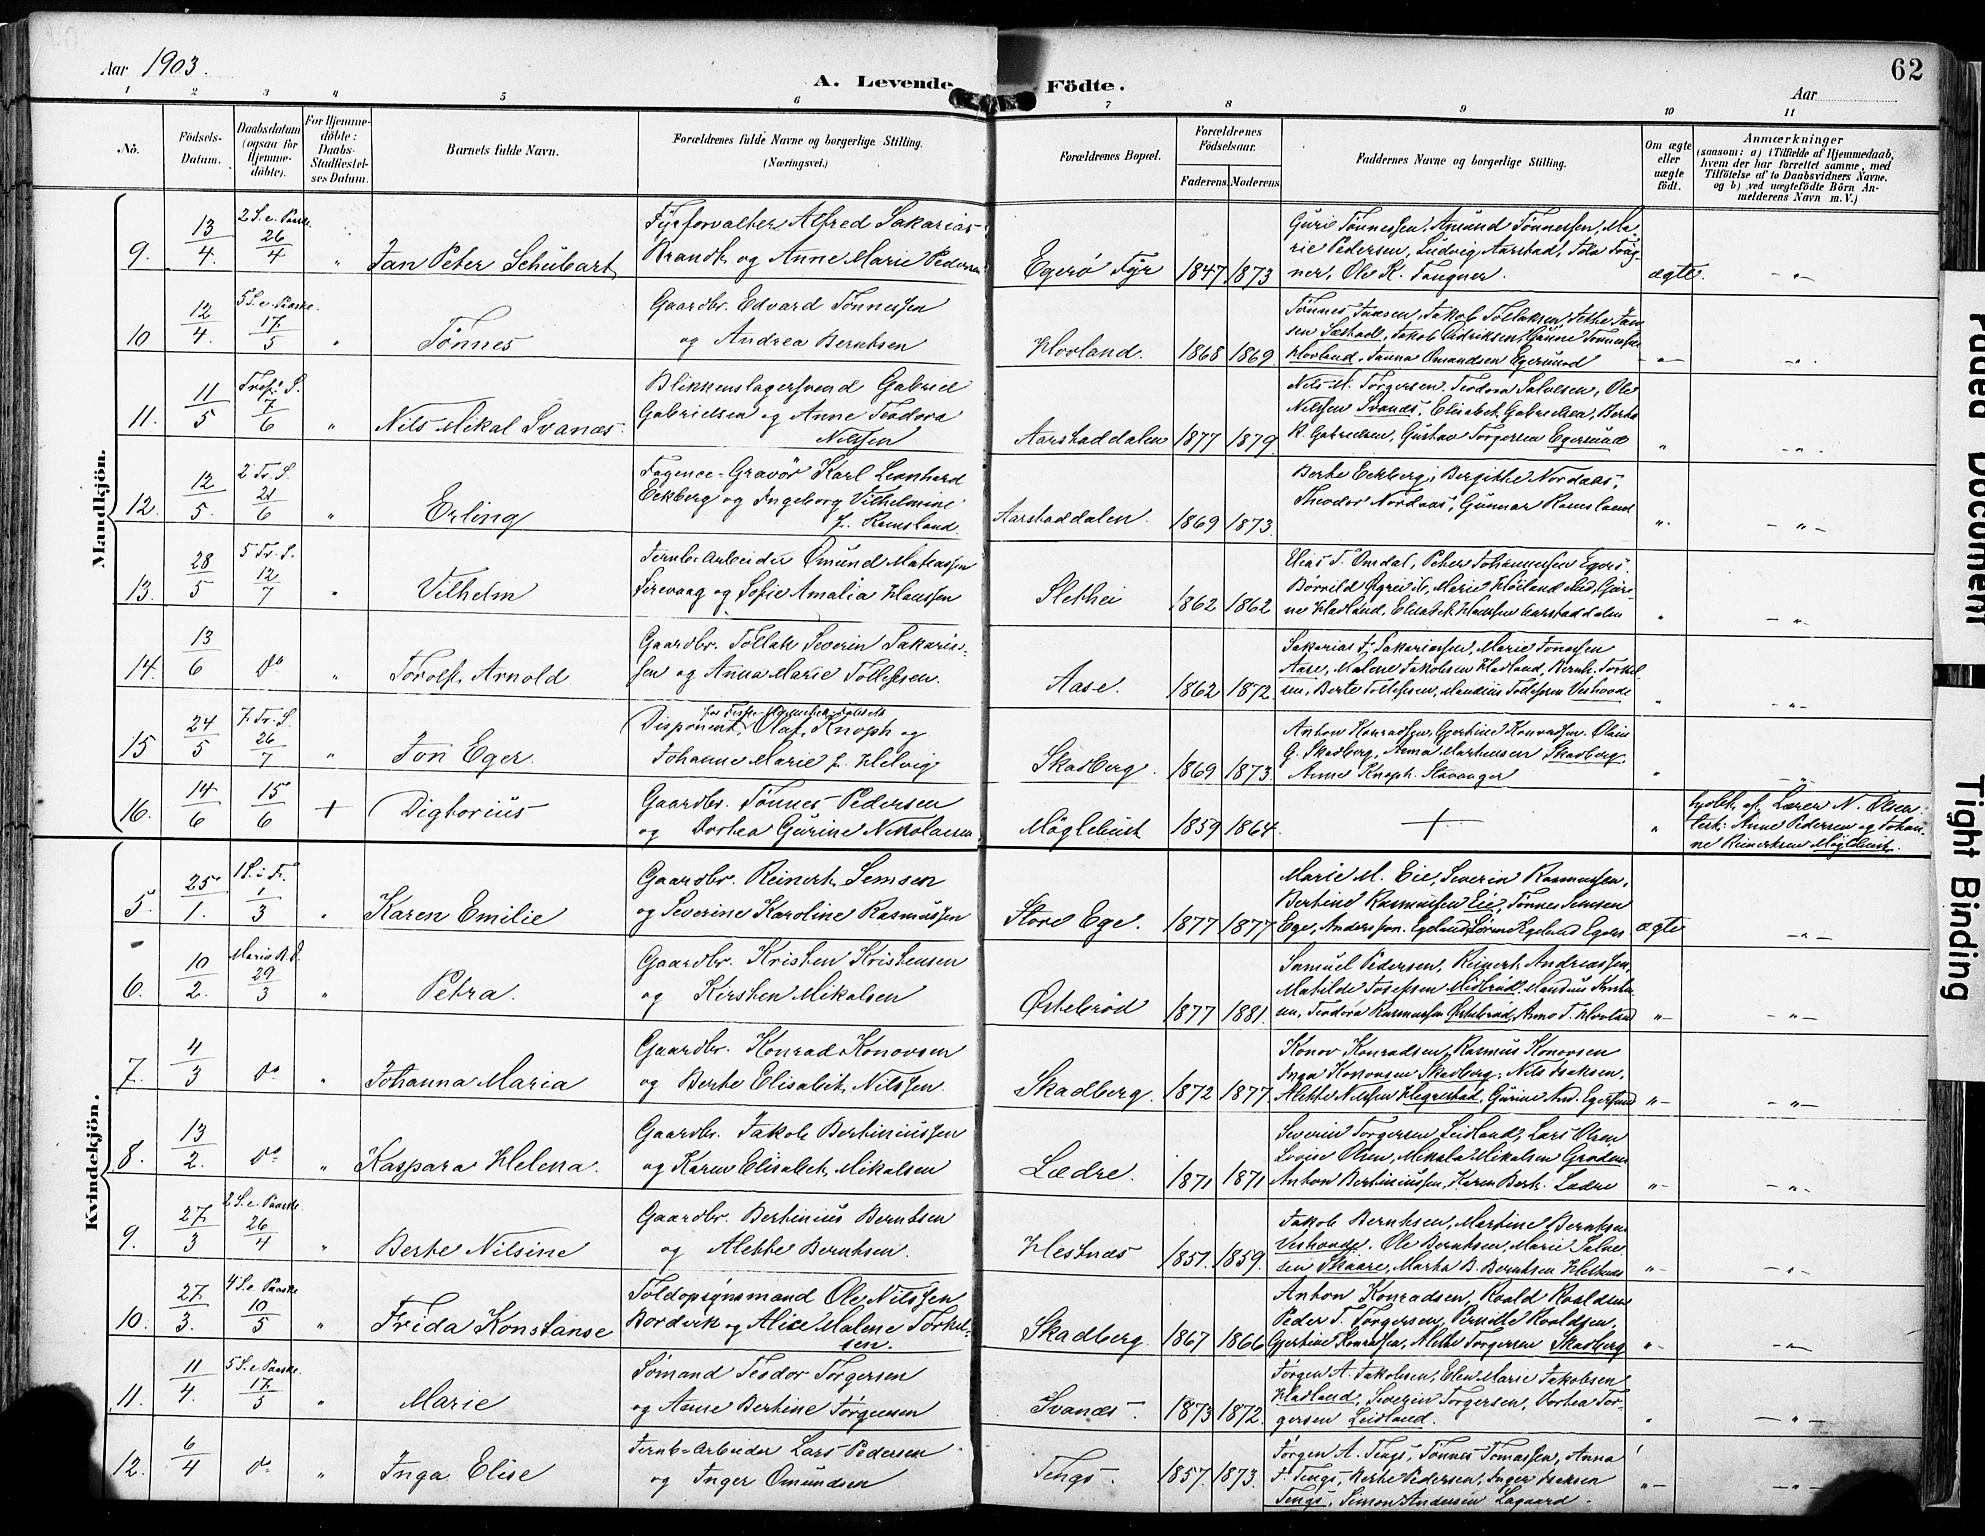 Aar 1903.
A. Levende Födte.
62
Aar
1 2 3 4 5 6 7 8 9 10 11
No.
Födsels-Datum.
Daabsdatum (ogsaa for Hjemme-döbte).
For Hjemme-döbte: Daabs-Stadfæstel-ses Datum.
Barnets fulde Navn.
Forældrenes fulde Navne og borgerlige Stilling.
(Næringsvei.)
Forældrenes Bopæl.
Forældrenes Födselsaar.
Faderens. Moderens.
Faddernes Navne og borgerlige Stilling.
Om ægte eller uægte födt.
Anmærkninger
(saasom: a) i Tilfælde af Hjemmedaab, hvem der har forrettet samme, med Tilföielse af to Daabsvidners Navne, og b) ved uægtefödte Börn Anmelderens Navn m. V.)
Mandkjön.
9. 13/4 2 S. e. Paaske 26/4 " Jan Peter Schübart
Fyrforvalter Alfred Sakarias
Brandt og Anne Marie Pedersen
Egerö Fyr 1847 1873
Gurie Tönnessen, Amund Tönnessen, Ma-
rie Pedersen, Ludvig Aarstad,
Ole K. Tangner. ægte. - " -
10 12/4. 5 S. e. Paaske. 17/5 " Tönnes
Gaardbr. Edvard Tönnessen
og Andrea Berntsen
Hovland. 1868 1869
Tönnes Jansen, Jakob Tollaksen,
Sæstad, Jakob Didriksen, Gunne Tönnessen
Hovland, Janna Omundsen Egersund - " - - " -
11. 11/5 Tref. S. 7/6 " Nils Mikal Svanæs.
Blikkenslagersvend Gabriel
Gabrielsen og Anne Teodora
Nilssen
Aarstaddalen 1877 1879
Nils M. Torgersen, Teodora Salvesen, Ole
Nilssen Svanæs, Elisabet Gabrielsen, Berta
K. Gabrielsen, Gustav Torgersen Egersund " - " -
12. 12/5. 2 Tr. S. 21/6 " Erling
Fayence-Gravör Karl Leonhard
Eckberg og Ingeborg Vilhelmine
f. Ramsland.
Aarstaddalen. 1869 1873.
Berte Eckberg, Bergitte Nordaas,
Theodor Nordaas, Gunnar Ramsland ". - " -
13. 28/5 5 Tr. S. 12/7 " Vilhelm
Jernb-Arbeider Ømund Mateassen
Sirevaag og Sofie Amalia Hanssen
Slethei 1862 1862
Elias T. Omdal, Peter Johannessen Egers.
Marie Höiland
Hadland, Elisabet Hanssen Aarstaddalen " - " -
14. 13/6 do " Torolf Arnold.
Gaardbr. Tollak Severin Sakarias-
sen og Anna Marie Tollefsen.
Aase. 1862 1872.
Sakarias J. Sakariassen, Marie Jonassen
Aase, Malene Jakobsen Hadland, Bernt Torkel-
sen, Berte Tollefsen, Mandius Tollefsen Veshovde " - " -
15 24/5 7. Tr. S. 26/7 " Jon Eger.
Disponent Olaf Knoph og
Johanne Marie f. Helvig
Skadberg. 1869 1873.
Anton Konradsen, Gjertine Konradsen, Olaus
G. Skadberg, Anna Martinsen Skadberg,
Anne Knoph Stavanger " - " -
16. 14/6 15/6 + Digtorius
Gaardbr. Tönnes Pedersen
og Dortea Gurine Nikolaisen.
Möglebust 1859 1864.
+ "
hjdöbt af Lærer N. Olsen
test: Anne Pedersen og Johan-
ne Reinertsen Möglebust.
Kvindekjön.
5. 25/1. 1 S. i F. 1/3 " Karen Emilie
Gaardbr. Reinert Semsen
og Severine Karoline Rasmussen
Store Ege. 1877 1877
Marie M. Eie, Severin Rasmussen,
Bertine Rasmussen Eie, Tönnes Semsen
Ege, Egers ægte - " -
6. 10/2. Mariæ B. D. 29/3 " Petra.
Gaardbr. Kristen Kristensen
og Kirsten Mikalsen
Østebröd 1877 1881.
Samuel Pedersen, Reinert Andreassen,
Matilde Josefsen Midbröd, Mandius Kristen-
sen, Teodora Rasmussen Østebröd, Anna T. Hovland " - - " -
7. 4/3 do " Johanna Maria
Gaardbr. Konrad Konovsen
og Berte Elisabet Nilssen.
Skadberg. 1872 1877.
Konov Konradsen, Rasmus Konovsen
Inga Konovsen Skadberg, Nils Isaksen,
Alette Nilssen Hegrestad, Gurine And. Egersund " - - " -
8. 13/2. do " Kaspara Helena.
Gaardbr. Jakob Bertiniussen
og Karen Elisabet Mikalsen
Lædre. 1871 1871
Severin Torgersen Leidland, Lars Olsen
Lovise Olsen, Mikala Mikalsen
Anton Bertiniussen, Karen Bert. Lædre " - - " -
9. 27/3 2. S. e. Paaske. 26/4 " Berte Nilsine
Gaardbr. Bertinius Berntsen
og Alette Berntsen.
Hestnæs 1851. 1859.
Jakob Berntsen, Martine Berntsen
Veshovde. Ole Berntsen, Marie Salve-
sen Skaare, Marta B. Berntsen Hestnæs " - - " -
10. 27/3. 4 S. e. Paaske 10/5 " Frida Konstanse
Toldopsynsmand Ole Nilssen
Bordvik og Alice Malene Torkel-
sen.
Skadberg. 1867 1866
Anton Konradsen, Roald Roaldsen
Peder T. Torgersen, Pernille Roaldsen,
Gjertine Konradsen, Alette Torgersen Skadberg " - - " -
11. 11/4. 5 S. e. Paaske 17/5 " Marie
Sömand Teodor Torgersen
og Anne Bertine Jörgensen
Svanæs. 1873 1872.
Jörgen A. Jakobsen, Elen Marie Jakobsen
Hadland, Severin Torgersen, Dortea Tor-
gersen Leidland. " - " -
12. 6/4 do " Inga Elise
Jernb-Arbeider Lars Pedersen
og Inger Omundsen
Tengs. 1857 1873.
Jörgen A. Tengs, Tönnes Tomassen, Anna
T. Tengs, Berte Pedersen, Inger Isaksen
Tengs, Simon Andersen Lagaard. " - - " -
Faded Document
Tight Binding